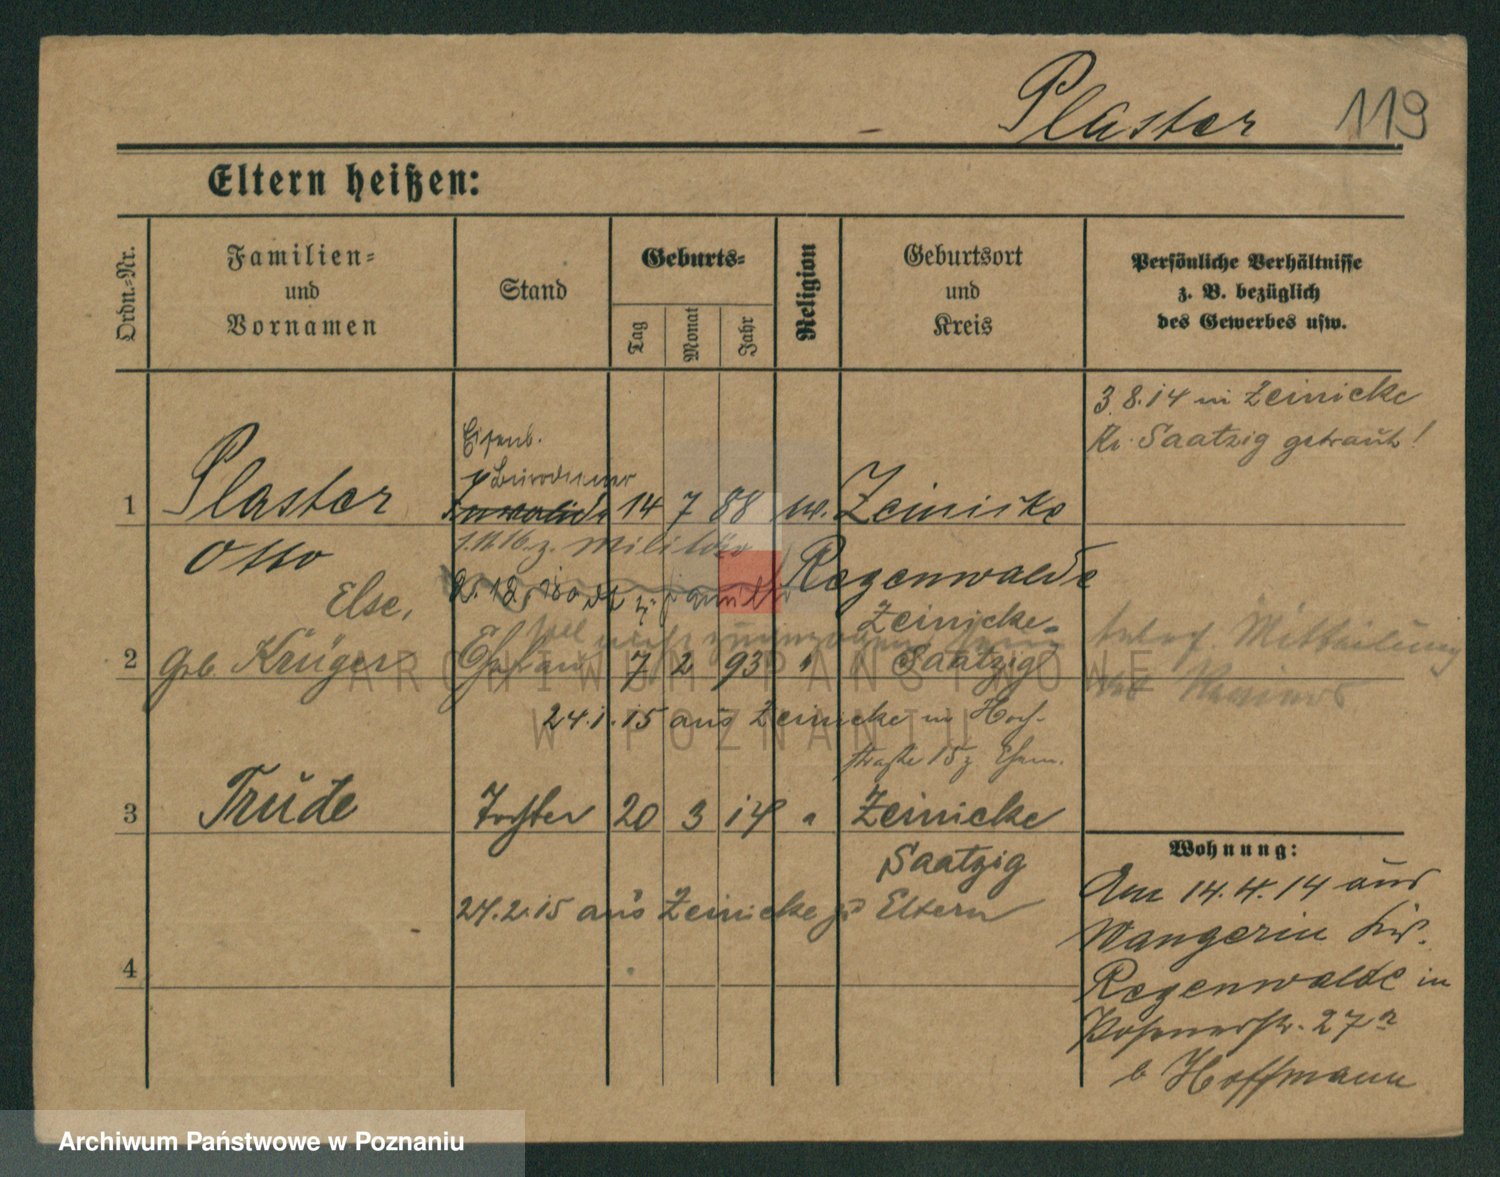 Plaster 119
Eltern heißen:
Ordn.-Nr.
Familien-
und
Vornamen
Stand
Geburts-
Tag
Monat
Jahr
Religion
Geburtsort
und
Kreis
Persönliche Verhältnisse
z. B. bezüglich
des Gewerbes usw.
3.8.14 in Zeinicke
Kr. Saatzig getraut!
Eisenb.
Bürodiener
1 Plaster Invalide 14 7 88 ev. Zeinicke
Otto z. Militär Regenwalde
Else, Zeinicke-
2 geb. Krüger Ehefrau 7 2 93 " Saatzig
telef. Mitteilung
24.1.15 aus Zeinicke in Hoch-
straße 15 z. Ehem.
3 Trude Tochter 20 3 14 " Zeinicke
Saatzig
24.2.15 aus Zeinicke zu Eltern
4
Wohnung:
Am 14.4.14 aus
Wangerin Krs.
Regenwalde in
Posenerstr. 27a
b Hoffmann
ARCHIWUM PAŃSTWOWE
W POZNANIU
Archiwum Państwowe w Poznaniu